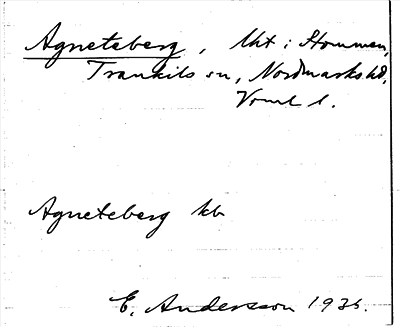 Agneteberg, lht i Stommen,
Trankils sn, Nordmarks hd,
Vrml l.
Agneteberg kb
E. Andersson 1936.